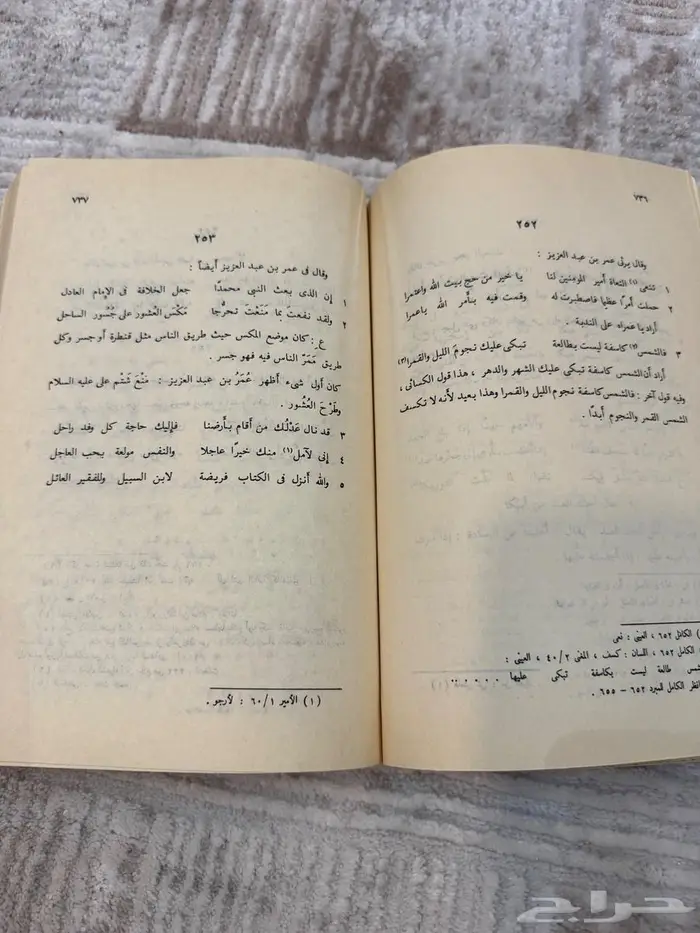 ٧٣٦
٢٥٢
وقال يرثى عمر بن عبد العزيز :
١ تنعى (١) النعاة أمير المؤمنين لنا يا خير من حج بيت الله واعتمرا
٢ حملت أمرًا عظيما فاصطبرت له وقمت فيه بأمر الله ياعمرا
أراد يا عمراه على الندبة .
٣ فالشمس (٢) كاسفة ليست بطالعة تبكى عليك نجوم الليل والقمرا (٣)
أراد أن الشمس كاسفة تبكى عليك الشهر والدهر ، هذا قول الكسائى ،
وفيه قول آخر : فالشمس كاسفة نجوم الليل والقمرا وهذا بعيد لأنه لا تكسف
الشمس القمر والنجوم أبدًا .
الكامل ٦٥٢ ، العينى : نعى
الكامل ٦٥٢ ، اللسان : كسف ، المغنى ٢/ ٤٠ ، العينى :
طالعة ليست بكاسفة تبكى عليها . . . . . .
انظر الكامل للمبرد ٦٥٢ – ٦٥٥ .
٧٣٧
٢٥٣
وقال فى عمر بن عبد العزيز أيضاً :
١ إن الذى بعث النبى محمدًا جعل الخلافة فى الإمام العادل
٢ ولقد نفعت بما منعت تحرُّجا مَكْسَ العُشُور على جُسُور الساحل
ع : كان موضع المكس حيث طريق الناس مثل قنطرة أو جسر وكل
طريق مَمَرّ الناس فيه فهو جسر .
كان أول شىء أظهر عُمَرُ بن عبد العزيز : مَنْعَ شَتْم على عليه السلام
وطَرْحَ العُشُور .
٣ قد نال عَدْلُك من أقام بأرضنا فإليك حاجة كل وفد راحل
٤ إنى لآمل (١) منك خيرًا عاجلا والنفس مولعة بحب العاجل
٥ والله أنزل فى الكتاب فريضة لابن السبيل وللفقير العائل
(١) الأمير ١/ ٦٠ : لأرجو .
حراج